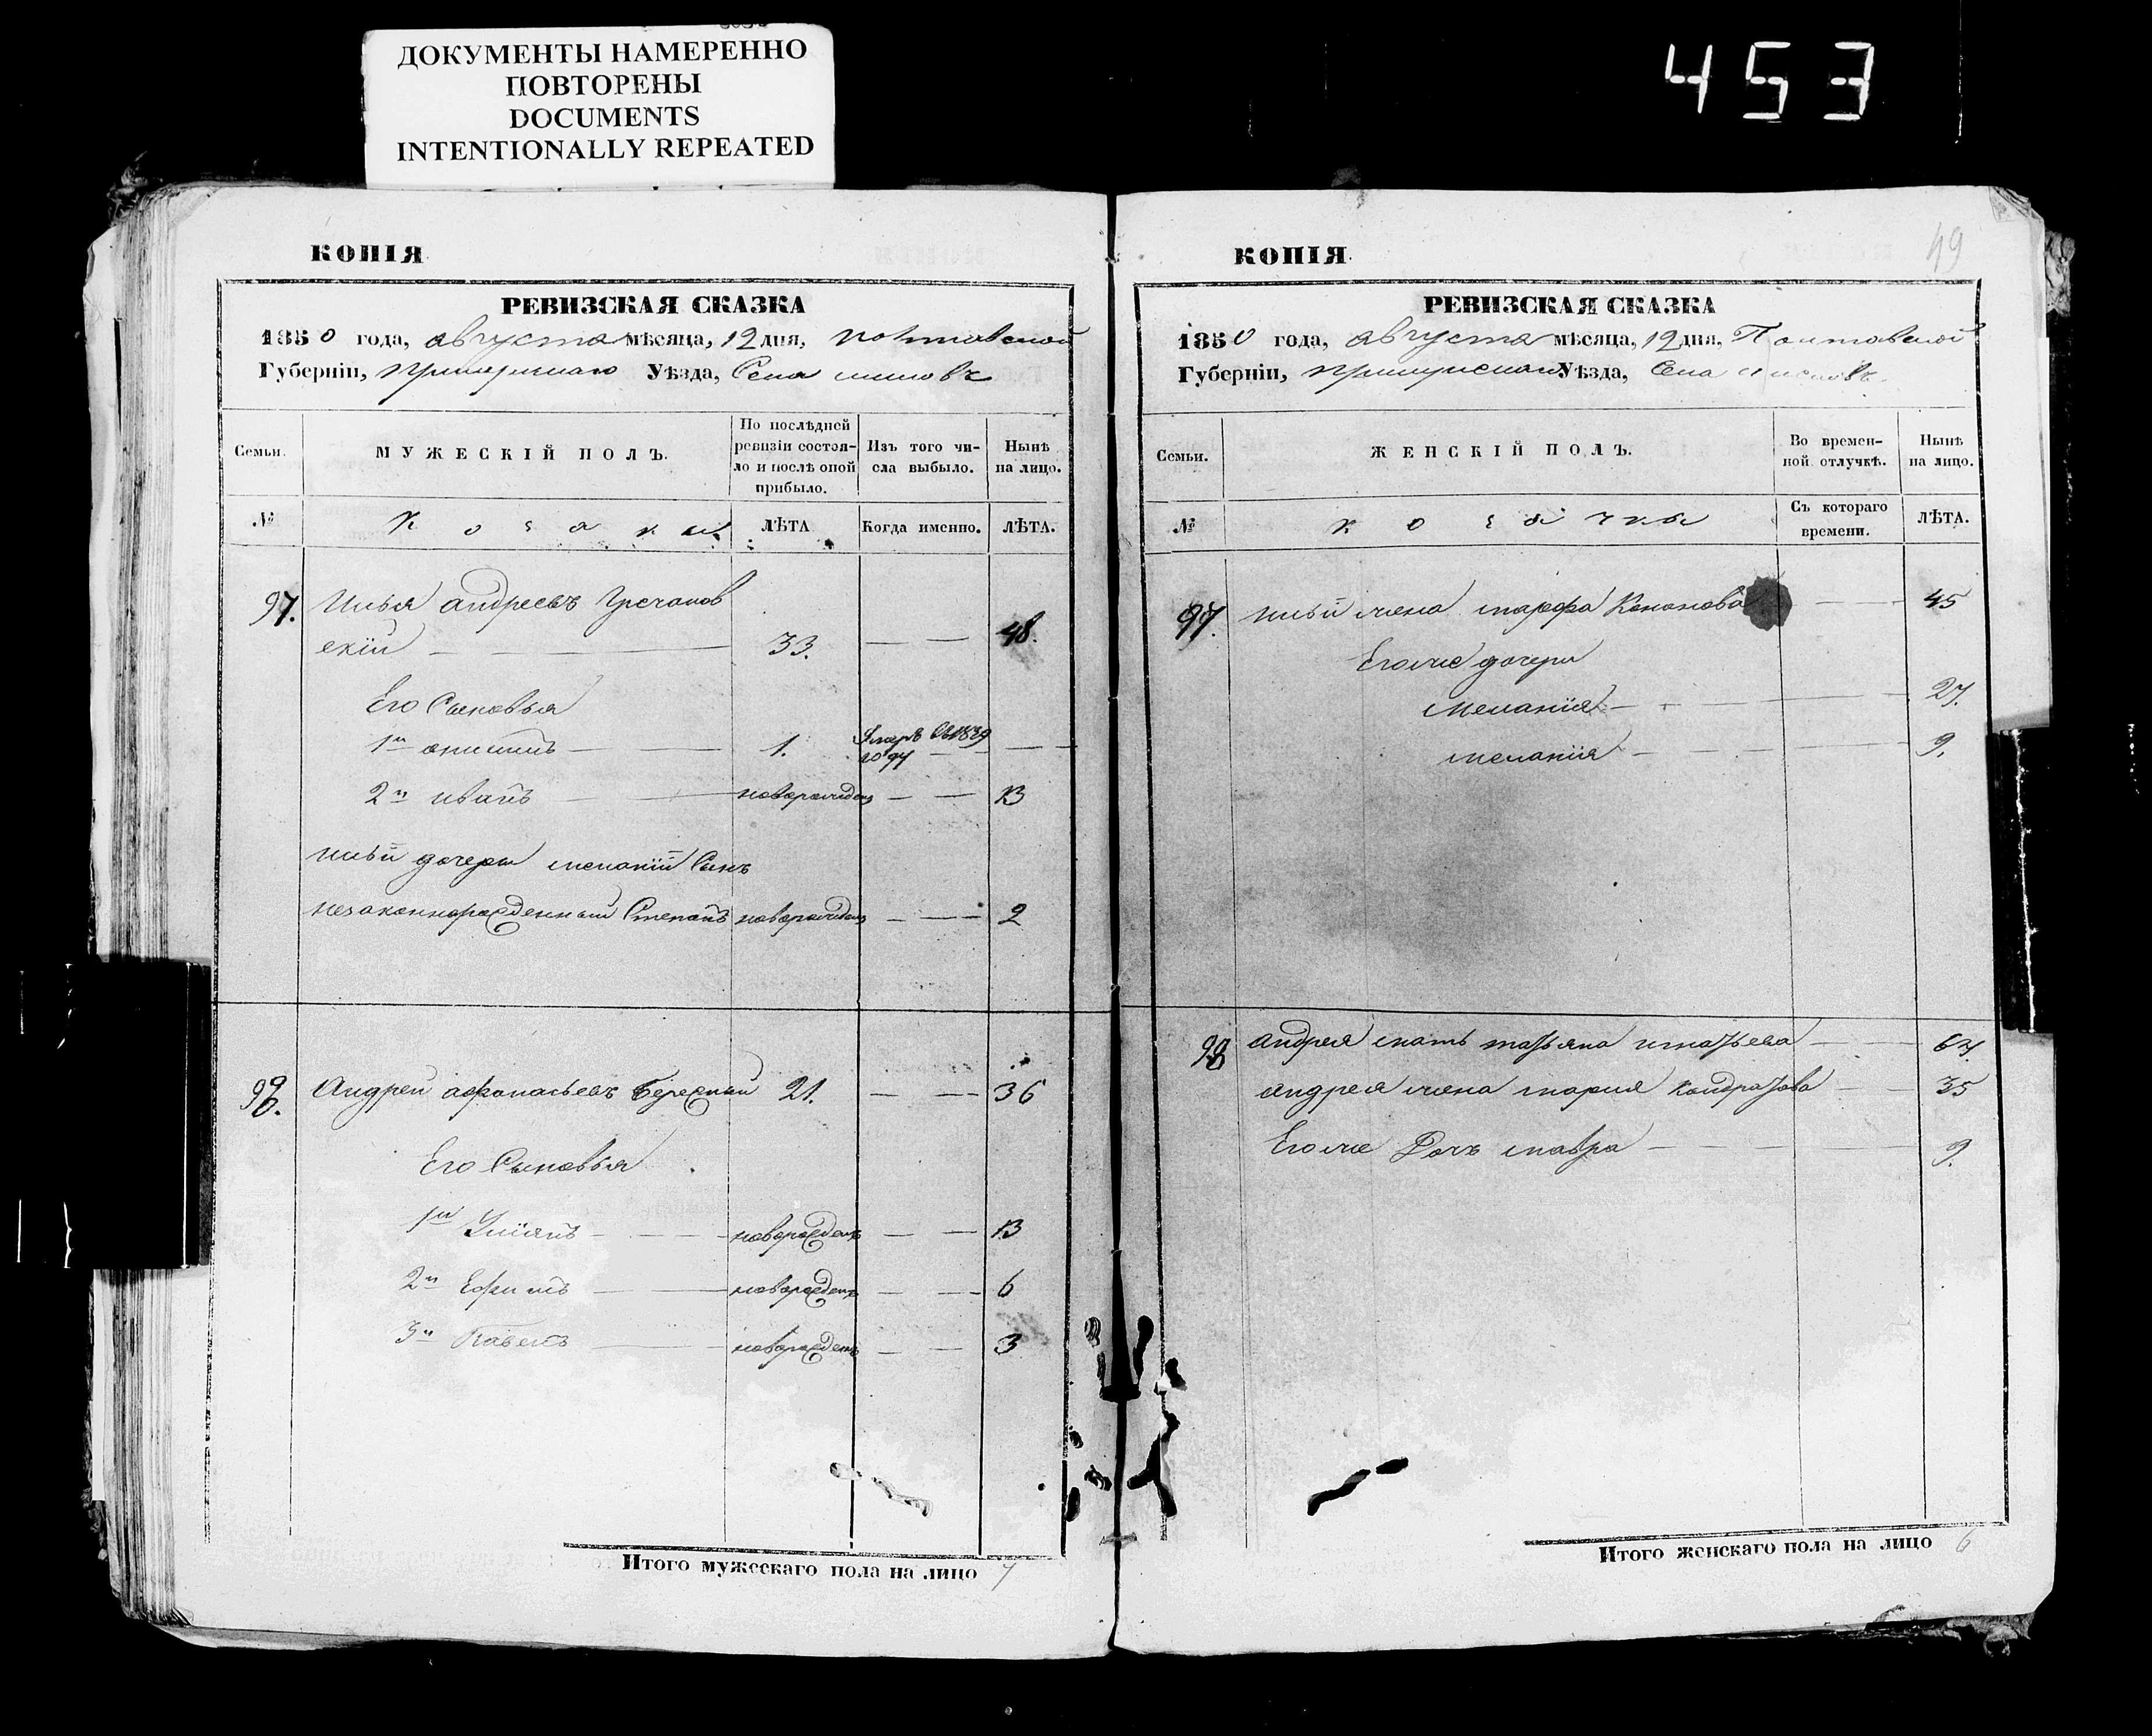 ДОКУМЕНТЫ НАМЕРЕННО
ПОВТОРЕНЫ
DOCUMENTS
INTENTIONALLY REPEATED
453
КОПІЯ
РЕВИЗСКАЯ СКАЗКА
1850 года, августа мѣсяца, 12 дня, полтавской
Губерніи, Уѣзда, Села
Семьи.
МУЖЕСКІЙ ПОЛЪ.
По послѣдней
ревизіи состоя-
ло и послѣ оной
прибыло.
Изъ того чи-
сла выбыло.
Нынѣ
на лицо.
№
козаки
ЛѢТА
Когда именно.
ЛѢТА.
97. Илья андреевъ Гречанов
скій 33. 48.
Его Сыновья
1й 1. Умеръ въ 1839
году
2й иванъ новорожденъ 13
ильи дочери меланіи Сынъ
незаконнорожденный Степанъ новорожденъ 2
98. Андрей афанасьевъ 21. 36
Его Сыновья
1й новорожденъ 13
2й Ефимъ новорожденъ 6
3й Павелъ новорожденъ 3
Итого мужескаго пола на лицо 7
КОПІЯ
49
РЕВИЗСКАЯ СКАЗКА
1850 года, августа мѣсяца, 12 дня, Полтавской
Губерніи, Уѣзда, Села
Семьи.
ЖЕНСКІЙ ПОЛЪ.
Во времен-
ной отлучкѣ.
Нынѣ
на лицо.
№
козачки
Съ котораго
времени.
ЛѢТА.
97. ильи жена марфа Кононова 45
Его же дочери
меланія 27.
меланія 9.
98 андрея мать татьяна игнатьева 67.
андрея жена мария кондратова 35
Его же Дочь мавра 9.
Итого женскаго пола на лицо 6